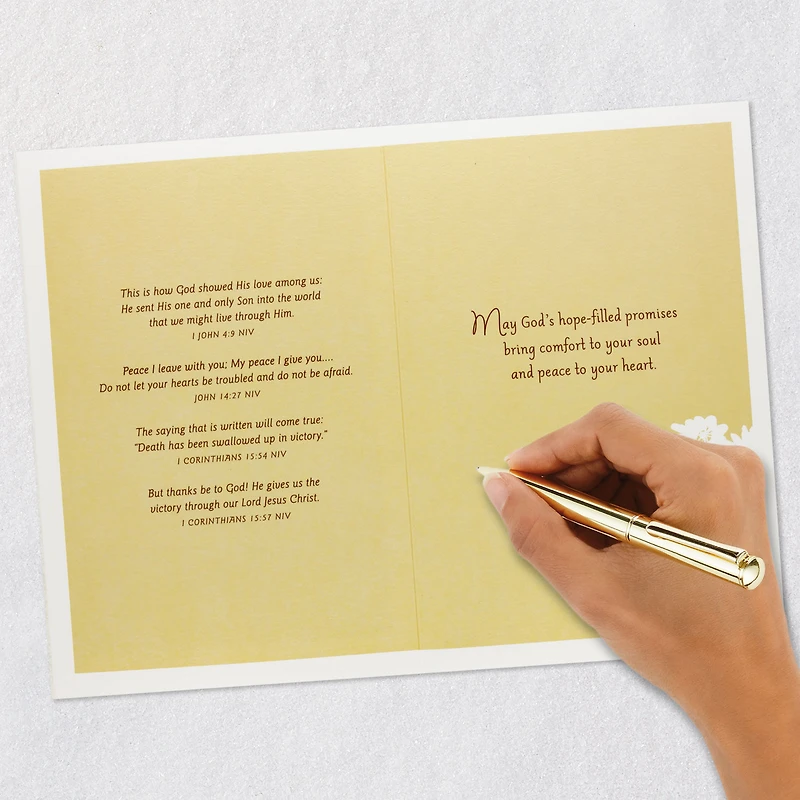 This is how God showed His love among us:
He sent His one and only Son into the world
that we might live through Him.
1 JOHN 4:9 NIV
Peace I leave with you; My peace I give you....
Do not let your hearts be troubled and do not be afraid.
JOHN 14:27 NIV
The saying that is written will come true:
"Death has been swallowed up in victory."
1 CORINTHIANS 15:54 NIV
But thanks be to God! He gives us the
victory through our Lord Jesus Christ.
1 CORINTHIANS 15:57 NIV
May God's hope-filled promises
bring comfort to your soul
and peace to your heart.